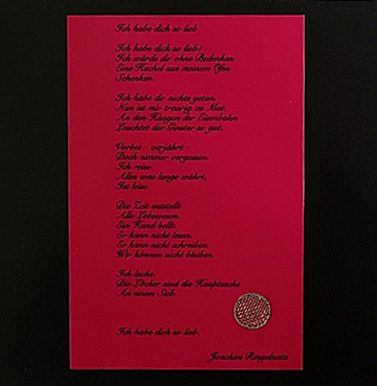 Ich habe dich so lieb
Ich habe dich so lieb!
Ich würde dir ohne Bedenken
Eine Kachel aus meinem Ofen
Schenken.
Ich habe dir nichts getan.
Nun ist mir traurig zu Mut.
An den Hängen der Eisenbahn
Leuchtet der Ginster so gut.
Vorbei - verjährt -
Doch nimmer vergessen.
Ich reise.
Alles was lange währt,
Ist leise.
Die Zeit entstellt
Alle Lebewesen.
Ein Hund bellt.
Er kann nicht lesen.
Er kann nicht schreiben.
Wir können nicht bleiben.
Ich lache.
Die Löcher sind die Hauptsache
An einem Sieb.
Ich habe dich so lieb.
Joachim Ringelnatz